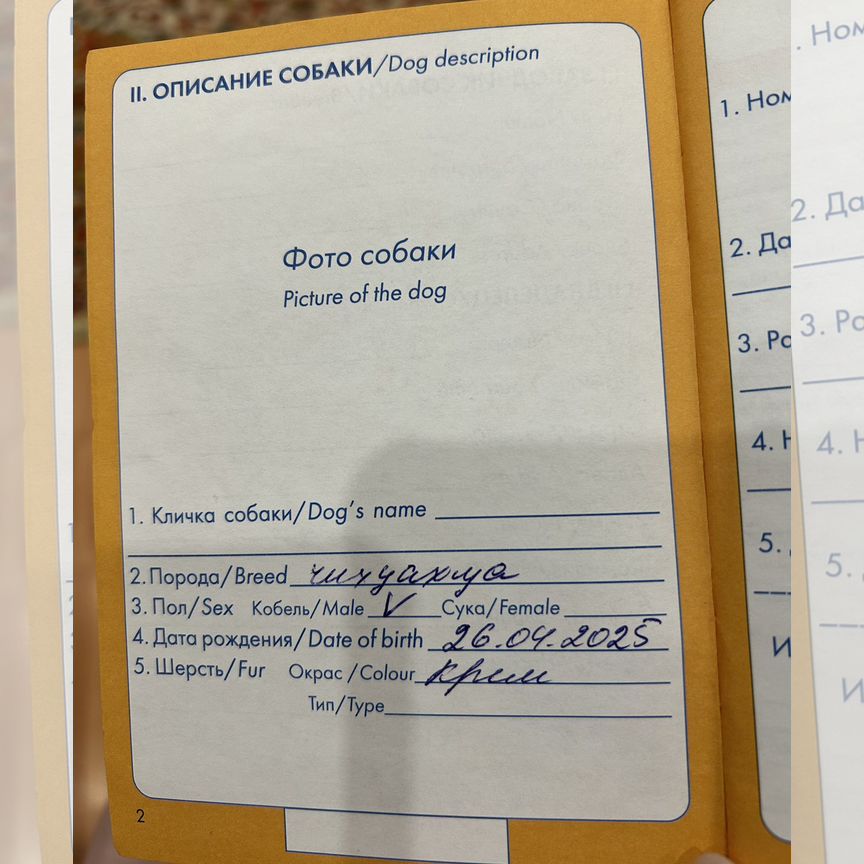 II. ОПИСАНИЕ СОБАКИ/Dog description
Фото собаки
Picture of the dog
1. Кличка собаки/Dog's name
2. Порода/Breed чихуахуа
3. Пол/Sex Кобель/Male V Сука/Female
4. Дата рождения/Date of birth 26.04.2025
5. Шерсть/Fur Окрас/Colour крем
Тип/Type
2
1. Ном
2. Да
3. Ро
4. Н
5.
И